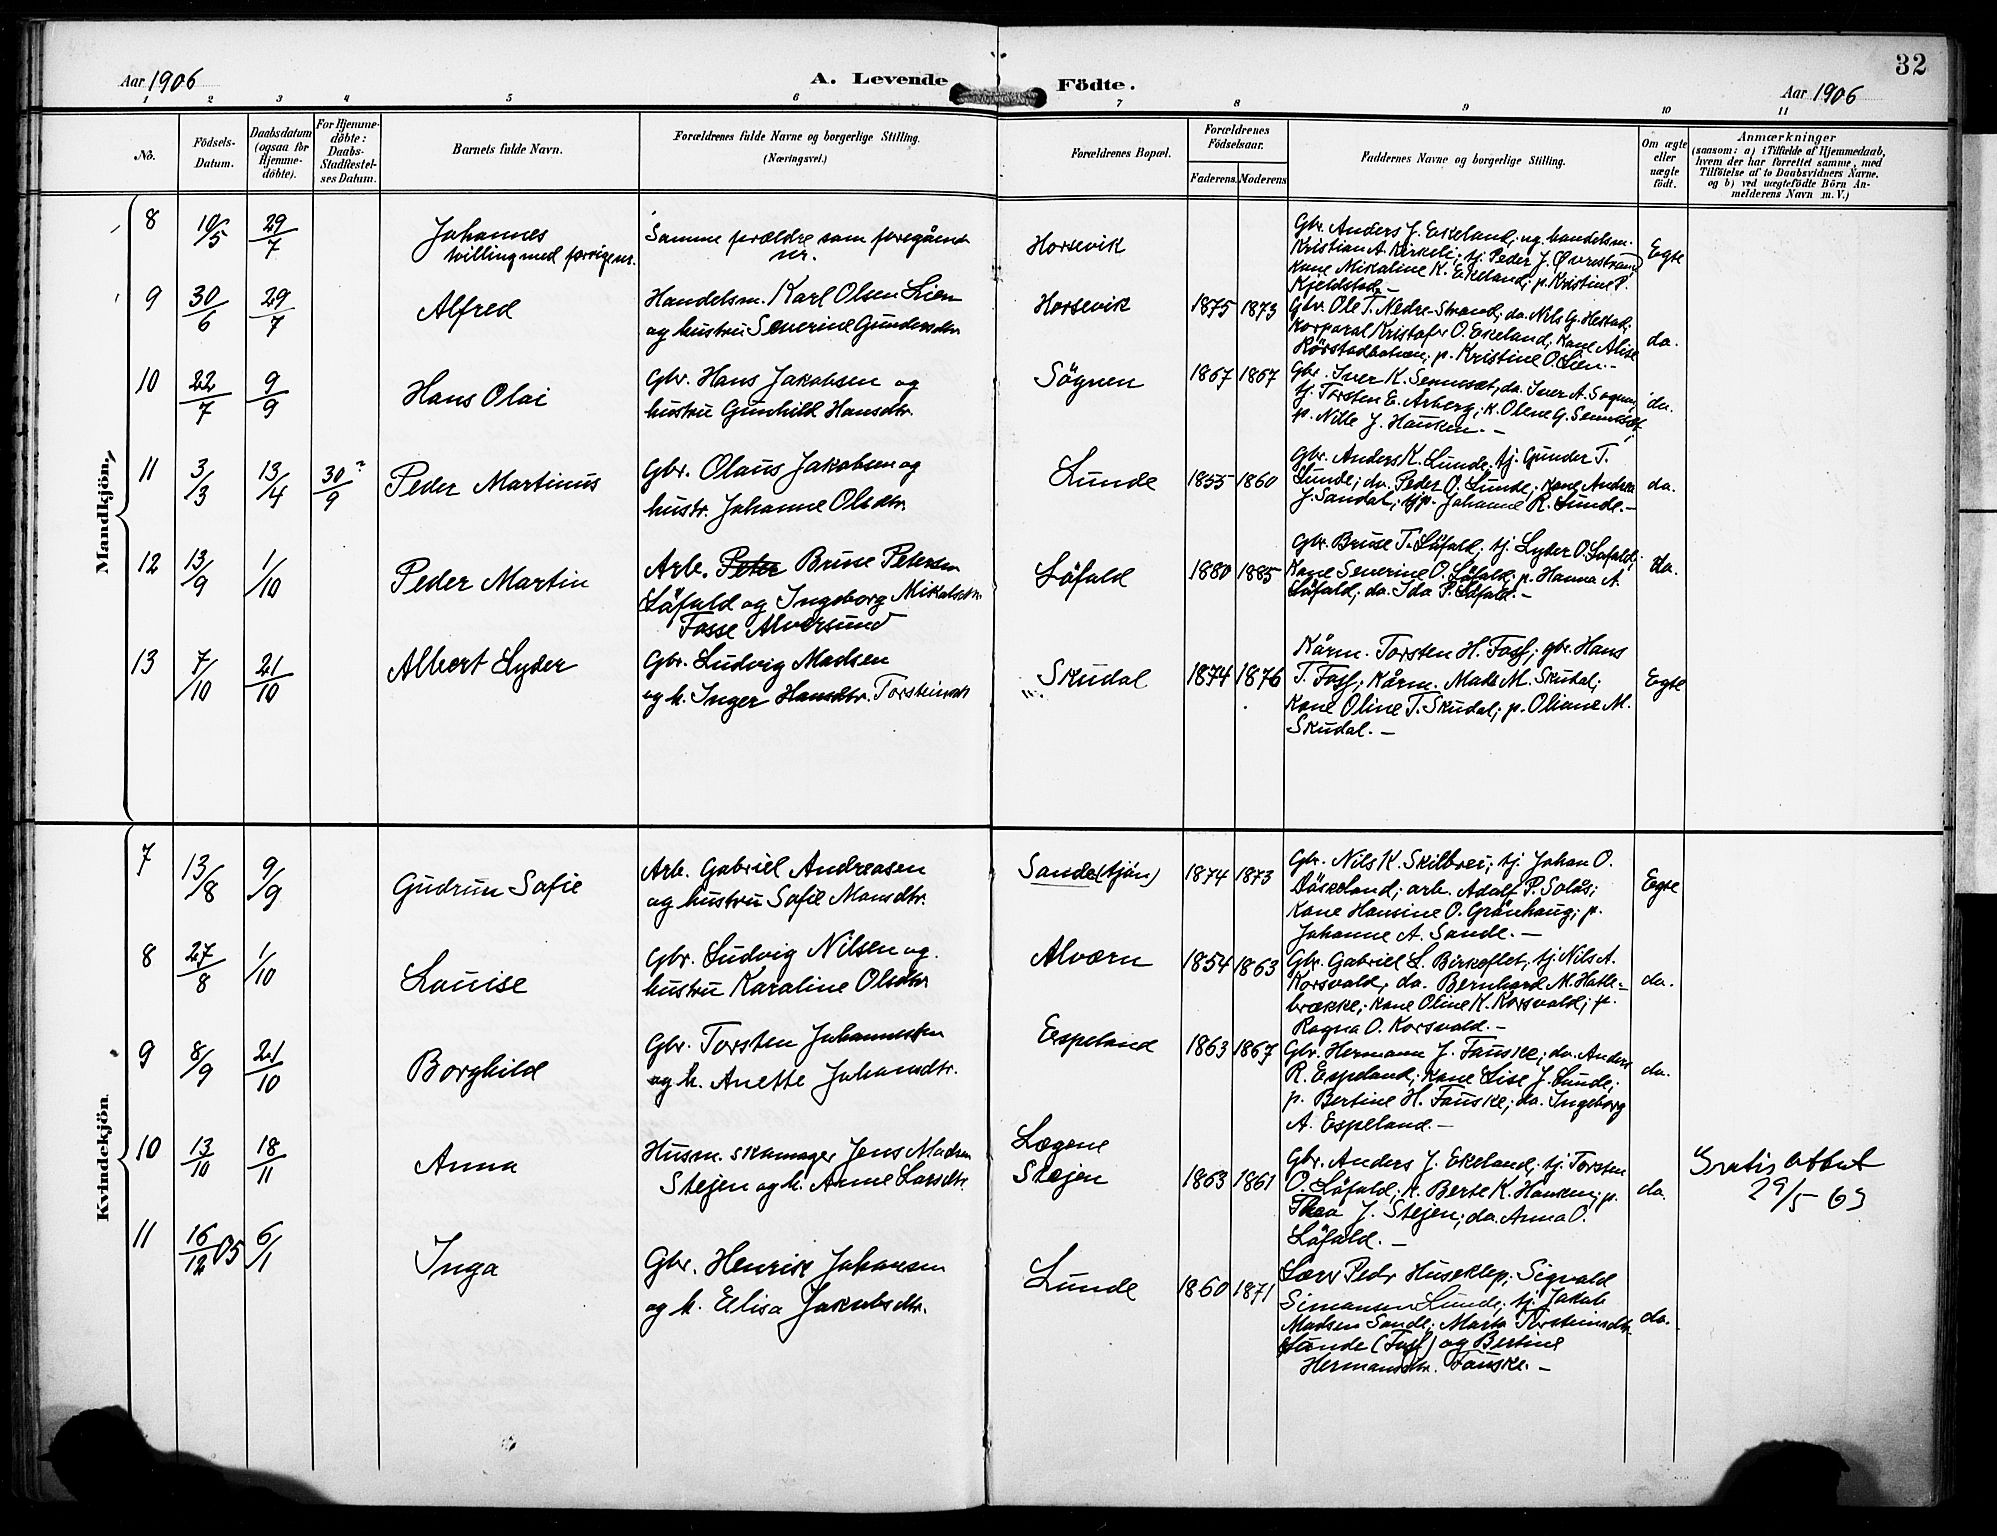 32
Aar 1906
A. Levende Födte.
Aar 1906
1 2 3 4 5 6 7 8 9 10 11
No.
Födsels-
Datum.
Daabsdatum
(ogsaa for
Hjemme-
döbte).
For Hjemme-
döbte:
Daabs-
Stadfestel-
ses Datum.
Barnets fulde Navn.
Forældrenes fulde Navne og borgerlige Stilling.
(Næringsvei.)
Forældrenes Bopæl.
Forældrenes
Födselsaar.
Faderens. Moderens.
Faddernes Navne og borgerlige Stilling.
Om ægte
eller
uægte
födt.
Anmærkninger
(saasom: a) i Tilfælde af Hjemmedaab,
hvem der har forrettet samme, med
Tilföielse af to Daabsvidners Navne.
og b) ved uægtefödte Börn An-
melderens Navn m. V.)
Mandkjön.
8 10/5 29/7
Johannes
tvilling med forrige nr.
Samme forældre som foregående
nr.
Horsevik
Gbr. Anders J. Ekeland, ug. handelsm.
Kristian A. Kirkeli; tj. Peder J. Øvrestrand
Kone Mikaline K. Ekeland; p. Kristine P.
Kjelstad.
Egte
9 30/6 29/7
Alfred
Handelsm. Karl Olsen Lien
og hustru Severine Gundersdtr.
Horsevik
1875 1873
Gbr. Ole T. Nedre-Strand; do. Nils G. Hestad;
Korporal Kristofer O. Ekeland, Kone Alise
p. Kristine O. Lien.-
do.
10 22/7 9/9
Hans Olai
Gbr. Hans Jakobsen og
hustru Gunhild Hansdtr.
Sögnen
1867 1867
Gbr. Iver K. Senneset, do. Iver A. Sognen,
tj. Torsten E. Arberg; K. Olene G. Senneset
p. Nille J. Hauken.-
do.
11 3/3 13/4 30/9
Peder Martinus
Gbr. Olaus Jakobsen og
hustr. Johanne Olsdtr.
Lunde
1855 1860
Gbr. Anders K. Lunde, tj. Gunder T.
Lunde; do. Peder O. Lunde; Kone Andrea
J. Sandal; tjp. Johanne R. Lunde.-
do.
12 13/9 1/10
Peder Martin
Arb. Peter Brune Petersen
Löfald og Ingeborg Mikalsdtr.
Fosse Alversund
Löfald
1880 1885
Gbr. Brune T. Löfald; tj. Lyder O. Löfald;
Kone Severine O. Löfald, p. Hanna A.
Löfald; do. Ida P. Löfald.-
do.
13 7/10 21/10
Albert Lyder
Gbr. Ludvig Madsen
og h. Inger Hansdtr. Torsteinsdtr.
Skudal
1874 1876
Kårm. Torsten H. Foss; gbr. Hans
T. Foss; Kårm. Mads M. Skudal;
Kone Oline T. Skudal; p. Oliane M.
Skudal.-
Egte
Kvindekjön
7 13/8 9/9
Gudrun Sofie
Arb. Gabriel Andreasen
og hustru Sofie Monsdtr.
Sande (tjön)
1874 1873
Gbr. Nils K. Skilbrei; tj. Johan O.
Döskeland; arb. Adolf P. Solås;
Kone Hansine O. Grönhaug; p.
Johanne A. Sande.-
Egte
8 27/8 1/10
Louise
Gbr. Ludvig Nilsen og
hustru Karoline Olsdtr.
Alværn
1854 1863
Gbr. Gabriel L. Birkeflet; tj. Nils A.
Korsvold, do. Bernhard M. Hatle-
brække; Kone Oline K. Korsvold; p.
Ragna O. Korsvold.-
do.
9 8/9 21/10
Borghild
Gbr. Torsten Johannessen
og h. Anette Johansdtr.
Espeland
1863 1867
Gbr. Hermann J. Fauske; do. Anders
R. Espeland; Kone Lise J. Lunde;
p. Bertine H. Fauske; do. Ingeborg
A. Espeland.-
do.
10 13/10 18/11
Anna
Husm. skomager Jens Madsen
Steien og h. Anne Larsdtr.
Lægene
Steien
1863 1861
Gbr. Anders J. Ekeland; tj. Torsten
O. Löfald; K. Berte K. Hansen; p.
Thea J. Steien; do. Anna O.
Löfald.-
do.
Gratis attest
29/5 63
11 16/12 05 6/1
Inga
Gbr. Henrik Johansen
og h. Elisa Jakobsdtr.
Lunde
1860 1871
Lærer Peder Huseklep; Sigvald
Simonsen Lunde; tj. Jakob
Madsen Sande; Marta Torsteinsdtr.
Lunde (Foss) og Bertine
Hermansdtr. Fauske.-
do.